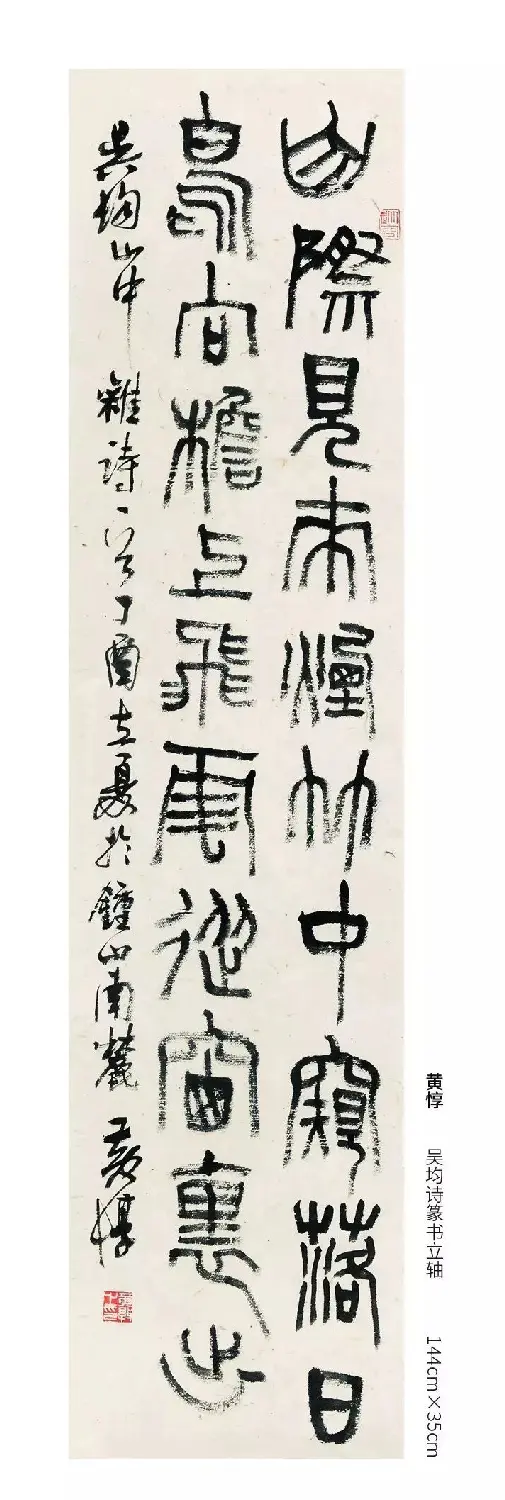 山際見來煙竹中窺落日
鳥向檐上飛雲從窗裏出
吳均山中雜詩一首丁酉立夏於鍾山南麓 黃惇
黄惇 吴均诗篆书立轴 144cm×35cm